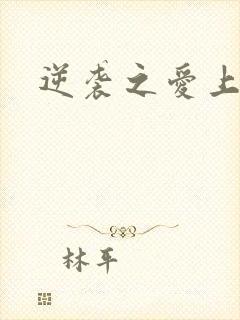 逆袭之爱上
林平